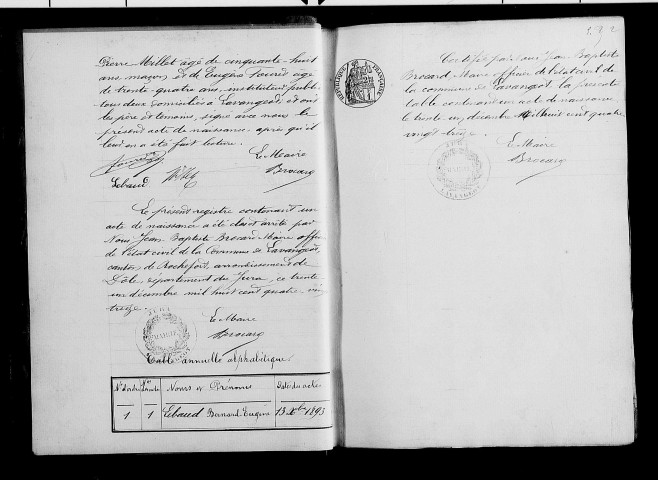 Pierre Millet âgé de cinquante huit
ans, maçon et de Eugène Fouris âgé
de trente-quatre ans, instituteur public
tous deux domiciliés à Lavangeot, et ont
les père et témoins, signé avec nous le
présent acte de naissance, après qu'il
leur en a été fait lecture.
Le Maire
Lebaud Brocard
Le présent registre contenant un
acte de naissance a été clos et arrêté par
Nous Jean Baptiste Brocard Maire officier
de l'état civil de la Commune de Lavangeot,
canton de Rochefort, arrondissement de
Dôle, département du Jura, ce trente
un décembre mil huit cent quatre vingt
treize.
Le Maire
Brocard
Table annuelle alphabétique.
Noms et Prénoms Date des actes
1 1 Lebaud Bernard Eugène 13 Xbre 1893
RÉPUBLIQUE FRANÇAISE
Certifié par nous Jean Baptiste
Brocard Maire officier de l'état civil de
la commune de Lavangeot, la présente
table contenant un acte de naissance
le trente un décembre mil huit cent quatre
vingt treize.
Le Maire
Brocard